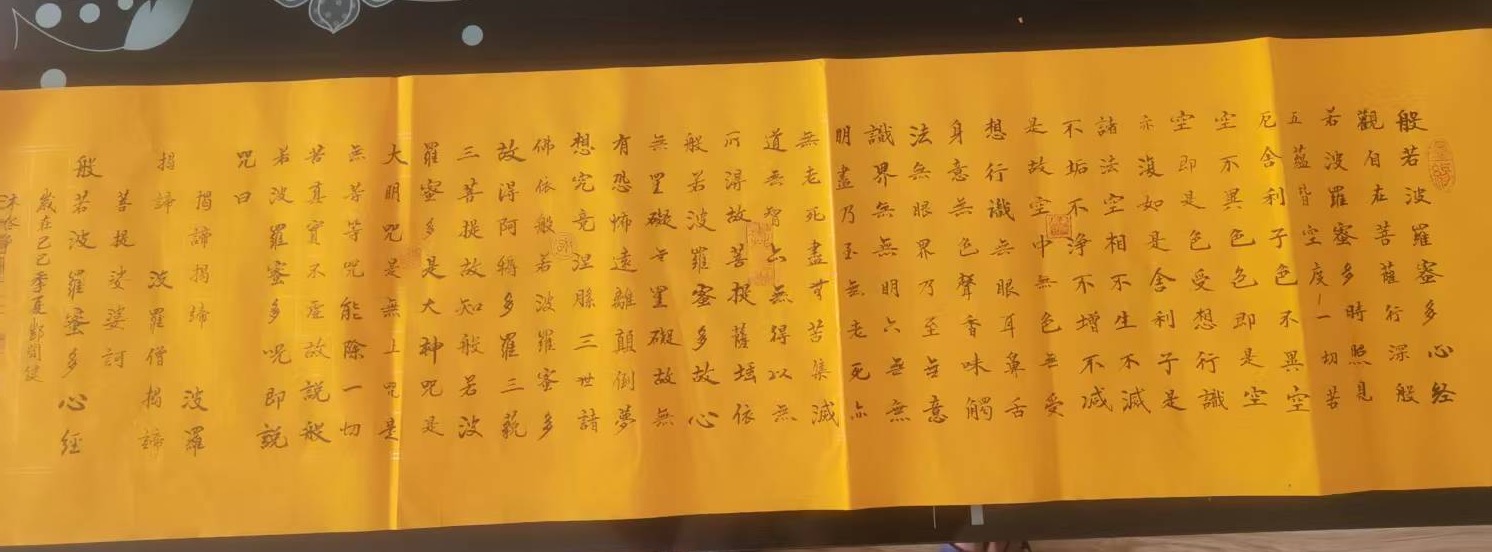 般若波羅蜜多心经
觀自在菩薩行深般
若波羅蜜多時照見
五蘊皆空度一切苦
厄舍利子色不異空
空不異色色即是空
空即是色受想行識
亦復如是舍利子是
諸法空相不生不滅
不垢不淨不增不減
是故空中無色無受
想行識無眼耳鼻舌
身意無色聲香味觸
法無眼界乃至無意
識界無無明亦無無
明盡乃至無老死亦
無老死盡無苦集滅
道無智亦無得以無
所得故菩提薩埵依
般若波羅蜜多故心
無罣礙無罣礙故無
有恐怖遠離顛倒夢
想究竟涅槃三世諸
佛依般若波羅蜜多
故得阿耨多羅三藐
三菩提故知般若波
羅蜜多是大神咒是
大明咒是無上咒是
無等等咒能除一切
苦真實不虛故説般
若波羅蜜多呪即説
咒曰
揭諦揭諦 波羅
揭諦 波羅僧揭諦
菩提娑婆訶
般若波羅蜜多心經
歲在己巳季夏